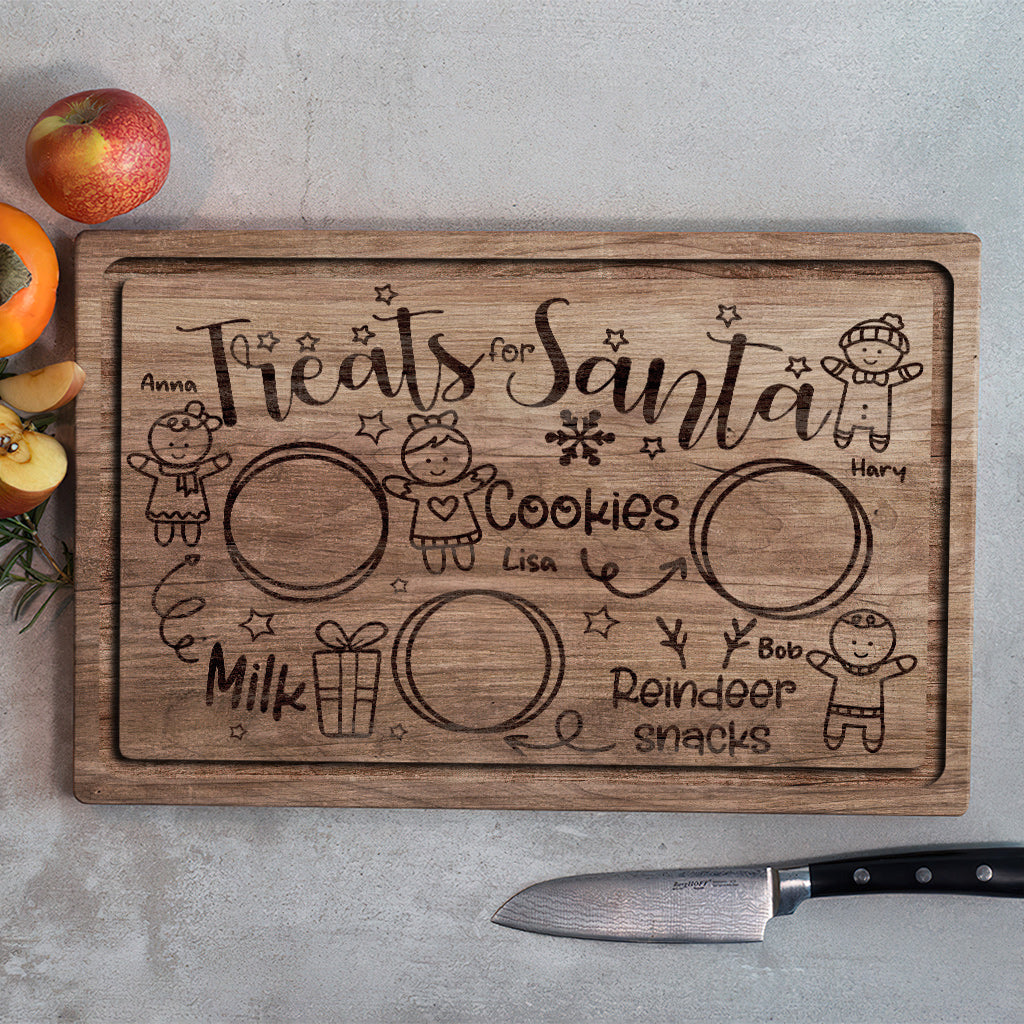 Treats for Santa
Anna
Hary
Cookies
Lisa
Milk
Bob
Reindeer
snacks
BergHOFF